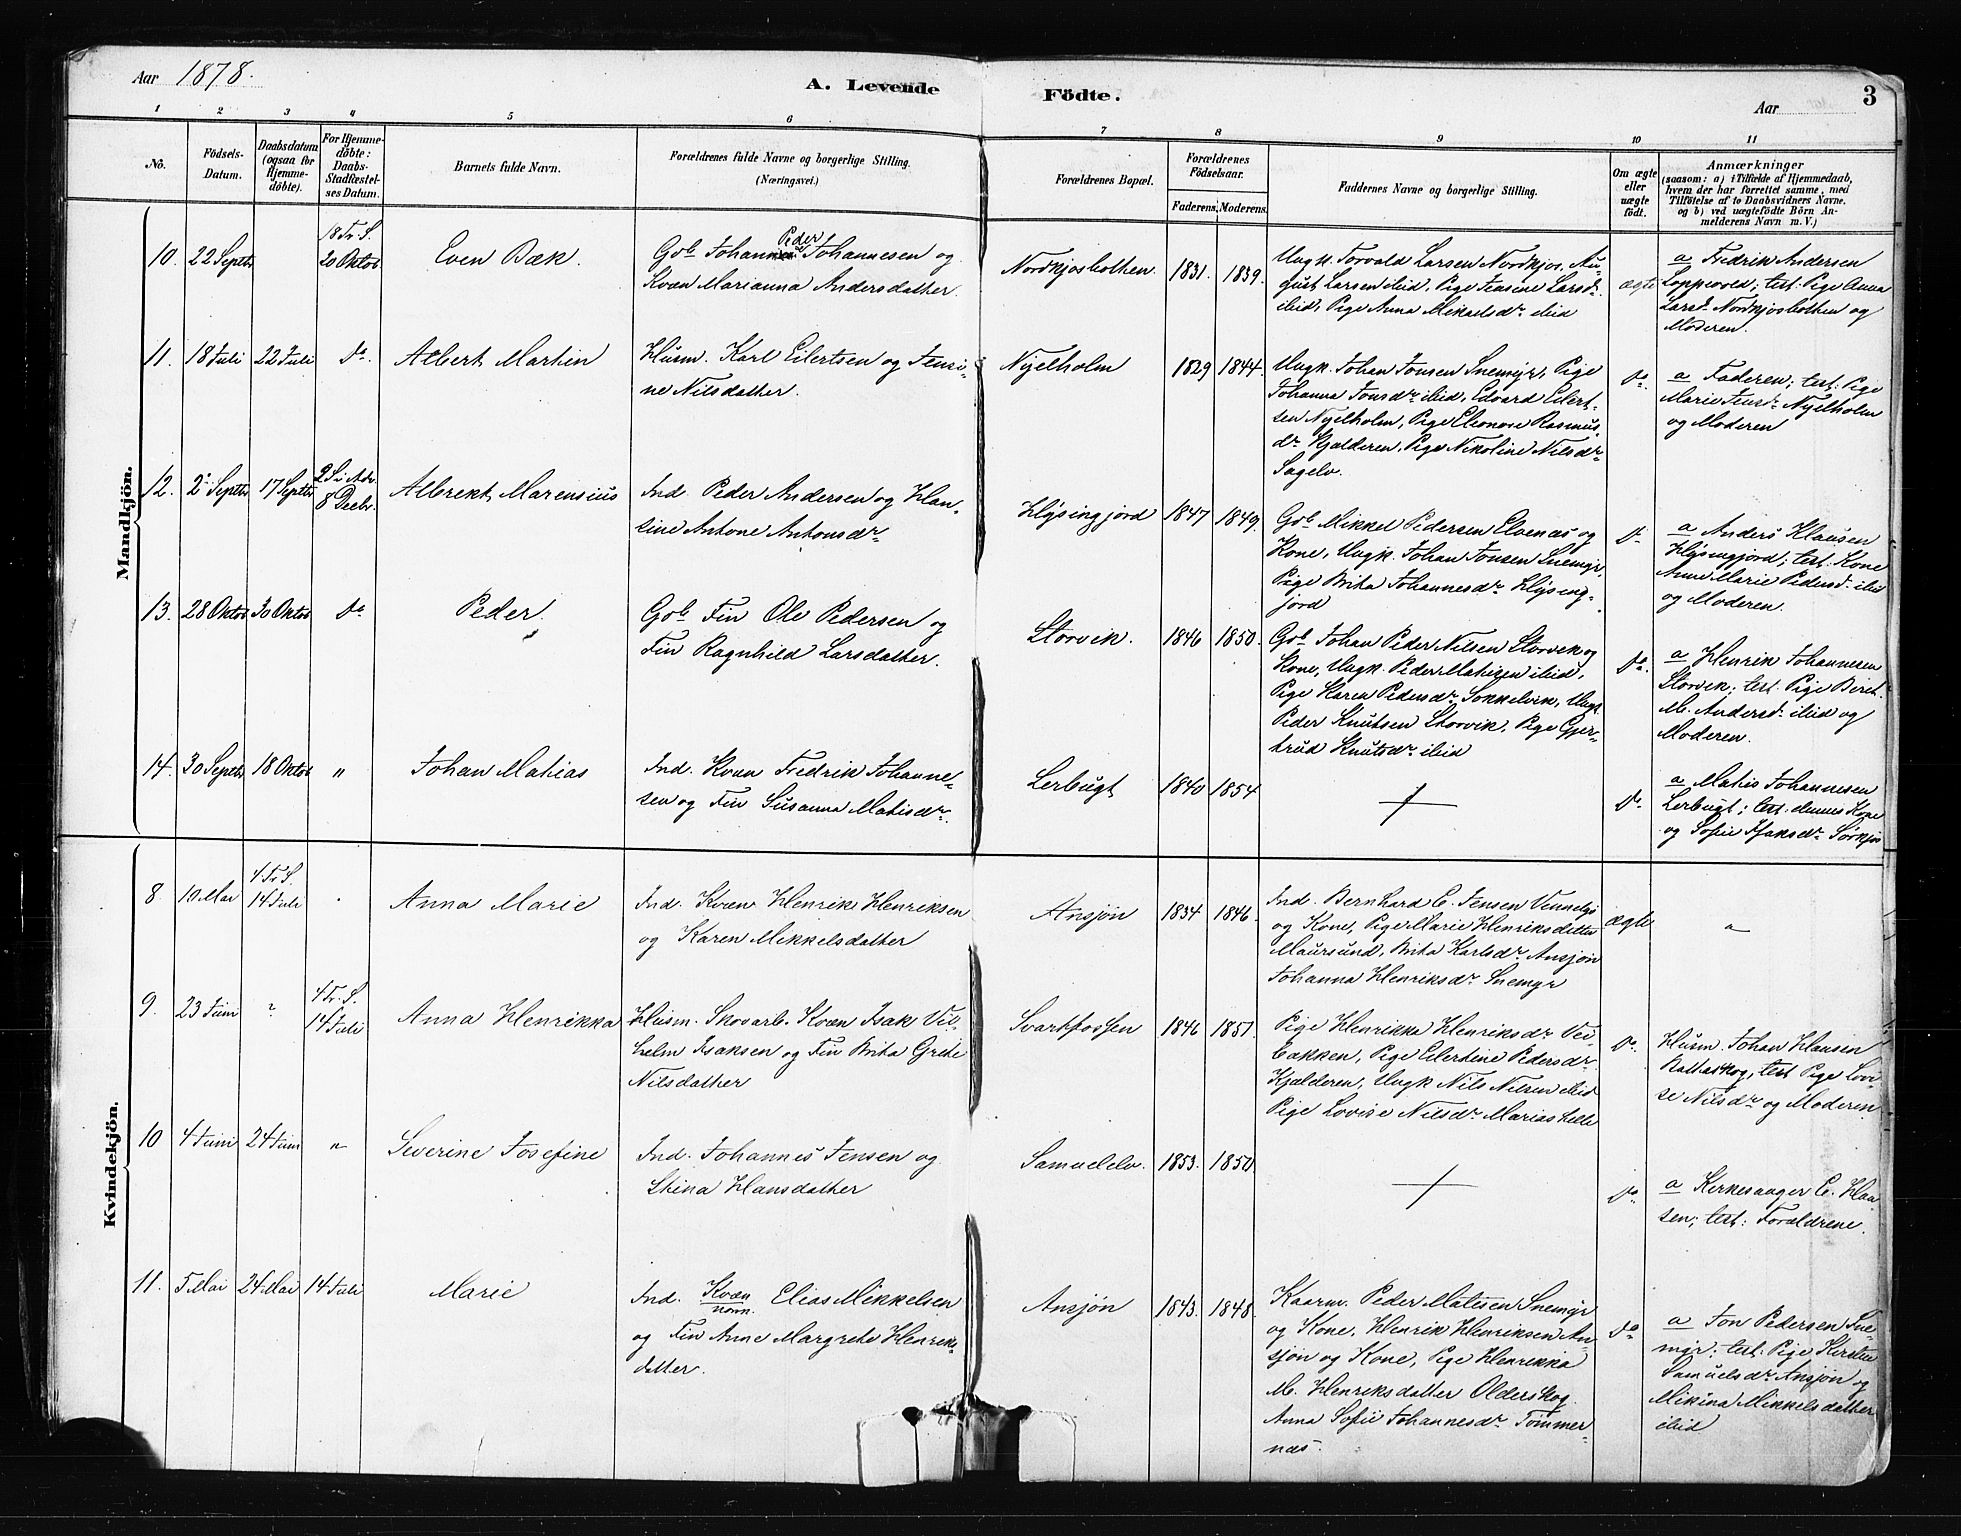 Aar 1878.
A. Levende Födte.
Aar
3
1 2 3 4 5 6 7 8 9 10 11
Nö.
Födsels-Datum.
Daabsdatum (ogsaa for Hjemmedöbte).
For Hjemmedöbte: Daabs-Stadfæstelses Datum.
Barnets fulde Navn.
Forældrenes fulde Navne og borgerlige Stilling.
(Næringsvei.)
Forældrenes Bopæl.
Forældrenes Födselsaar.
Faderens. Moderens.
Faddernes Navne og borgerlige Stilling.
Om ægte eller uægte födt.
Anmærkninger
(saasom: a) i Tilfælde af Hjemmedaab,
hvem der har forrettet samme, med
Tilföielse af to Daabsvidners Navne,
og b) ved uægtefödte Börn An-
melderens Navn m. V.)
Mandkjön.
10. 22 Septr 18 Tr. S. 20 Oktob
Even Bæk.
Gbr Johan Peder Johannesen og
Kvæn Marianna Andersdatter.
Nordkjosbothen. 1831. 1839.
Ungk. Torvald Larsen Nordkjos, Au-
gust Larsen ibid, Pige Jensine Larsdr
ibid, Pige Anna Mikaelsdr ibid
ægte
a Fredrik Andersen
Loppevold; test: Pige Anna
Larsdr Nordkjosbothen og
Moderen.
11. 18 Juli 22 Juli do.
Albert Martin
Husm. Karl Eilertsen og Jensi-
ne Nilsdatter.
Nyelholm 1829 1844.
Ungk. Johan Jonsen Snemyr, Pige
Johanna Jonsdr ibid, Edvard Eilert-
sen Nyelholm, Pige Eleonore Rasmus
dr Kjælderen, Pige Nikoline Nilsdr
Sagelv.
do.
a Faderen; test: Pige
Marie Jensdr Nyelholm
og Moderen
12. 2 Septr 17 Septr 2 S. i Adv. 8 Decbr.
Albrekt Marensius
Ind. Peder Andersen og Han-
sine Antone Antonsdr
Hysingjord 1847 1849.
Gbr Mikkel Pedersen Elvenæs og
Kone, Ungk. Johan Jonsen Snemyr,
Pige Brita Johannesdr Hysing-
jord
do
a Anders Klausen
Hysingjord; test: Kone
Anne Marie Pedersdr ibid
og Moderen.
13. 28 Oktob 30 Oktob do
Peder.
Gbr Fin Ole Pedersen og
Fin Ragnhild Larsdatter.
Storvik. 1846 1850.
Gbr Johan Peder Nilsen Storvik og
Kone, Ungk. Peder Mathisen ibid,
Pige Karen Pedersdr Sokkelvik, Ungk
Peder Knutsen Storvik, Pige Gjer-
trud Knutsdr ibid
do.
a Henrik Johannesen
Storvik; test. Pige Beret
M. Andersdr ibid og
Moderen.
14. 30 Septr 18 Oktob "
Johan Mathias
Ind. Kvæn Fredrik Johanne-
sen og Fin Susanna Mathisdr.
Lerbugt 1840 1854
do.
a Mathis Johannesen
Lerbugt; test. dennes Kone
og Sofie Isaksdr Sørkjos
Kvindekjön.
8 10 Mai 4 Tr. S. 14 Juli
Anna Marie
Ind. Kvæn Henrik Henriksen
og Karen Mikkelsdatter
Ansjøn 1834 1846.
Ind. Bernhard C. Jensen
og Kone, Pige Marie Henriksdatter
Maursund, Brita Karlsdr Ansjøn
Johanna Henriksdr Snemyr
ægte
"
9. 23 Juni ? 4 Tr. S. 14 Juli
Anna Henrikka
Husm. Skovarb. Kvæn Isak Vil-
helm Isaksen og Fin Brita Grete
Nilsdatter
Svartfossen 1846 1851
Pige Henrikke Henriksdr Vei-
bakken, Pige Eilertine Pedersdr
Kjælderen, Ungk Nils Nilsen ibid
Pige Lovise Nilsdr Marias
do.
Husm. Johan Hansen
Rattaskog, test Pige Lovi-
se Nilsdr og Moderen.
10 4 Juni 24 Juni "
Severine Josefine
Ind. Johannes Jensen og
Stina Hansdatter
Samuelelv. 1853. 1850
do.
a Kirkesanger C. Han-
sen; test: Forældrene.
11. 5 Mai 24 Mai 14 Juli
Marie
Ind. Kvæn
norn. Elias Mikkelsen
og Fin Anne Margrete Henriks-
datter.
Ansjøn 1843. 1848.
Kaarm. Peder Matisen Snemyr
og Kone, Henrik Henriksen An-
sjøn og Kone, Pige Henrikka
M. Henriksdatter Olderskog
Anna Sofie Johannesdr Tømmer-
næs.
do
a Jon Pedersen Sne-
myr; test: Pige Kirstine
Samuelsdr Ansjøn og
Mikina Mikkelsdatter
ibid